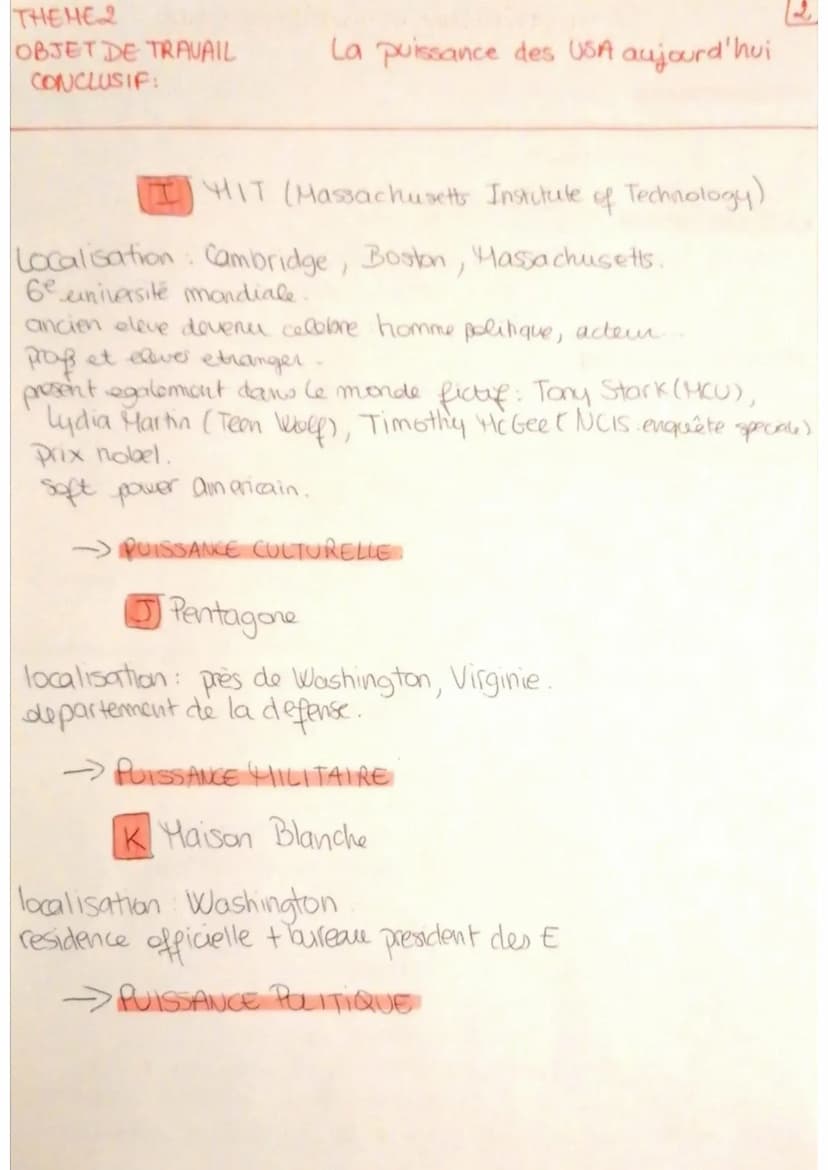 THEME 2
2
OBJET DE TRAVAIL La puissance des USA aujourd'hui
CONCLUSIF:
I MIT (Massachusetts Institute of Technology)
Localisation : Cambridge, Boston, Massachusetts.
6e université mondiale.
ancien eleve devenu celebre homme politique, acteur...
prof et eleves etranger.
present egalement dans le monde fictif : Tony Stark (MCU),
Lydia Martin (Teen Wolf), Timothy McGee (NCIS enquête speciale)
prix nobel.
soft power americain.
→ PUISSANCE CULTURELLE.
J Pentagone
localisation : près de Washington, Virginie.
departement de la defense.
→ PUISSANCE MILITAIRE
K Maison Blanche
localisation : Washington
residence officielle + bureau president des E
→ PUISSANCE POLITIQUE